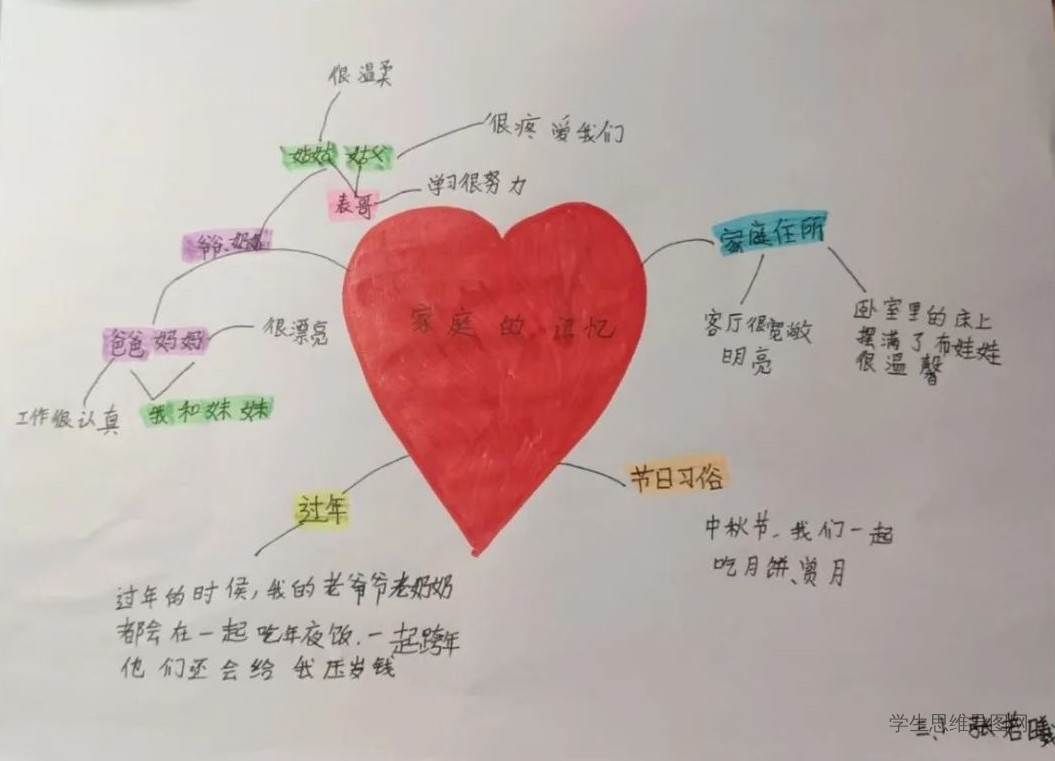 很温柔
姑姑 姑父
很疼爱我们
表哥
学习很努力
爷爷、奶奶
爸爸 妈妈
很漂亮
工作很认真
我和妹妹
家庭的记忆
家庭住所
客厅很宽敞
明亮
卧室里的床上
摆满了布娃娃
很温馨
过年
过年的时侯,我的老爷爷老奶奶
都会在一起吃年夜饭.一起跨年
他们还会给我压岁钱
节日习俗
中秋节、我们一起
吃月饼、赏月
学生思维导图网
张若曦